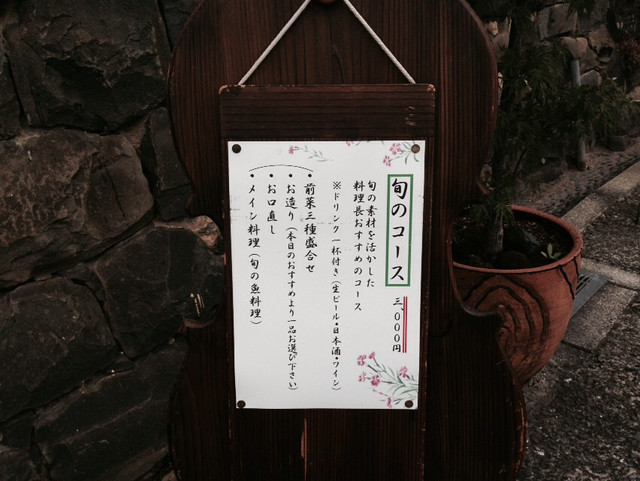 旬のコース
三、000円
旬の素材を活かした
料理長おすすめのコース
※ドリンク一杯付き(生ビール・日本酒・ワイン)
・前菜三種盛合せ
・お造り(本日のおすすめより一品お選び下さい)
・お口直し
・メイン料理(旬の魚料理)